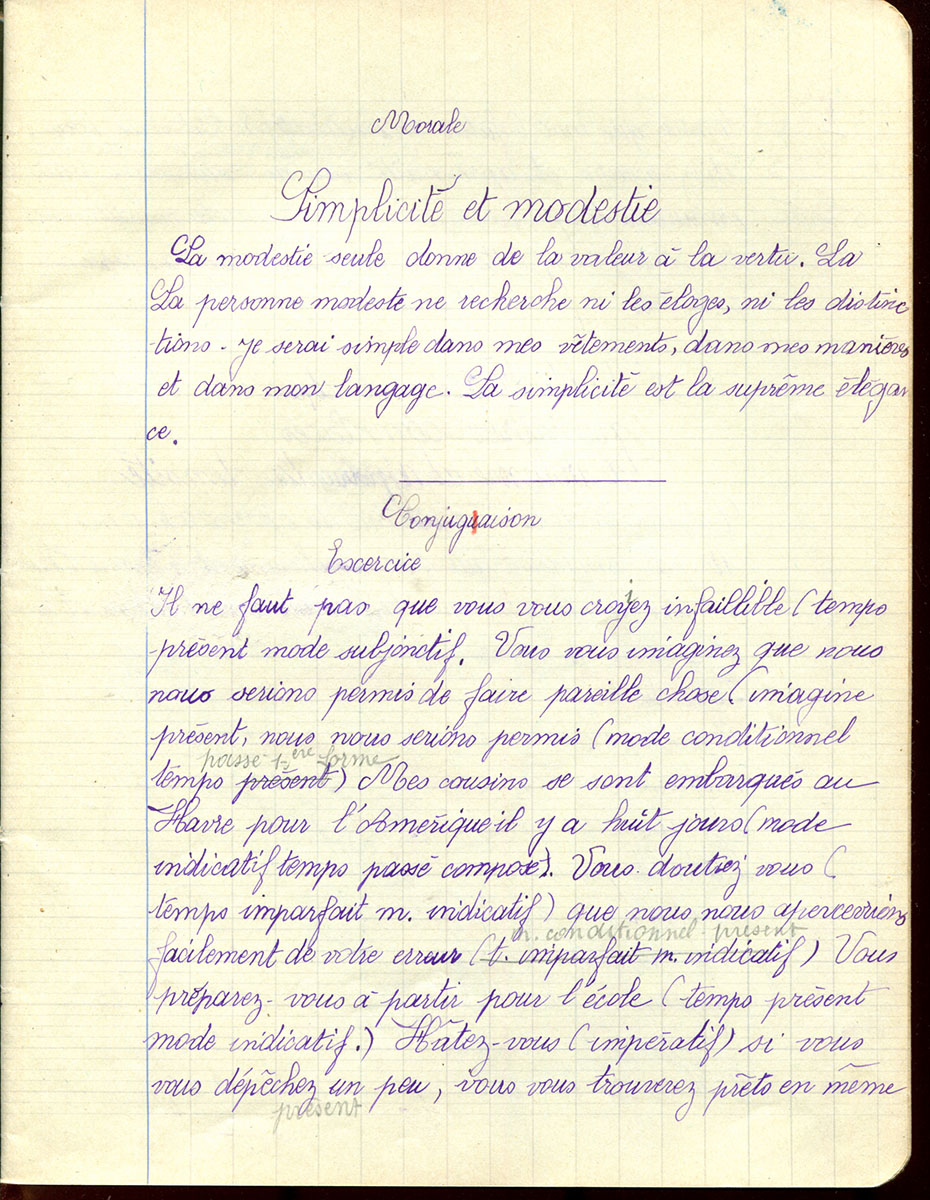 Morale
Simplicité et modestie
La modestie seule donne de la valeur à la vertu. La
La personne modeste ne recherche ni les éloges, ni les distinc
tions - je serai simple dans mes vêtements, dans mes manières
et dans mon langage. La simplicité est la suprême élégan
ce.
Conjuguaison
Excercice
Il ne faut pas que vous vous croyiez infaillible (temps
présent mode subjonctif. Vous vous imaginez que nous
nous serions permis de faire pareille chose (imagine
présent, nous nous serions permis (mode conditionnel
passé 1ère forme
temps présent) Mes cousins se sont embarqués au
Havre pour l'Amérique il y a huit jours (mode
indicatif temps passé composé). Vous doutiez vous (
temps imparfait m. indicatif) que nous nous apercevrions
m. conditionnel présent
facilement de votre erreur (t. imparfait m. indicatif) Vous
préparez-vous à partir pour l'école (temps présent
mode indicatif.) Hâtez-vous (impératif) si vous
vous dépêchez un peu, vous vous trouverez prêts en même
présent